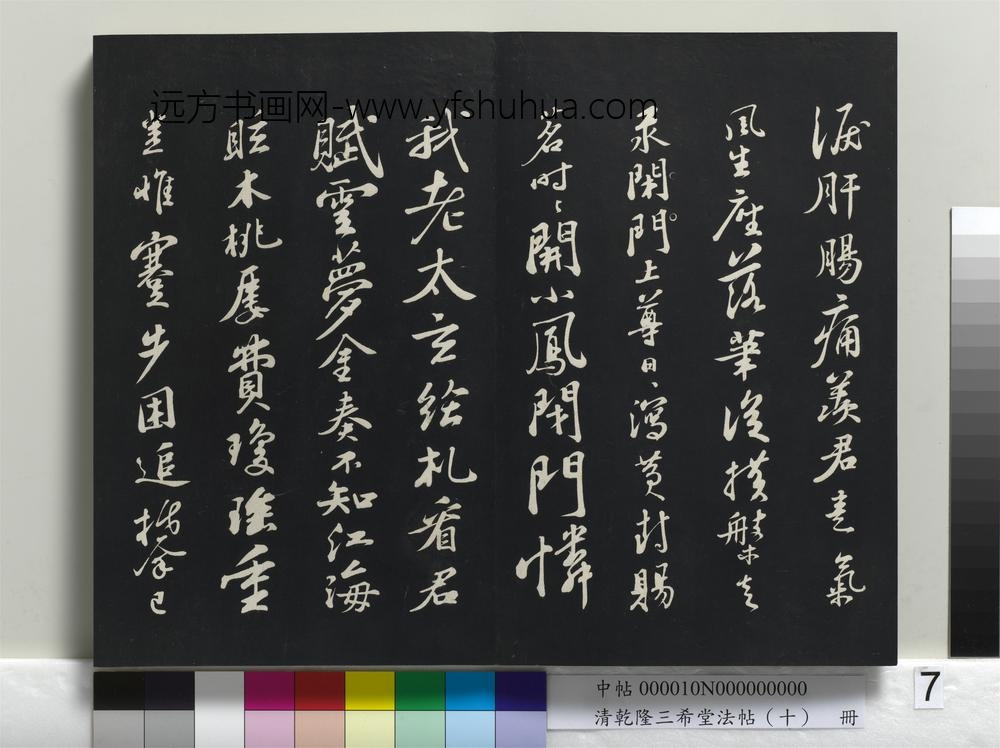 淚肝腸痛羨君意氣
風生座落筆從橫槃走
汞閉門上尊日、瀉黃封賜
茗時、開小鳳閉門憐
我老太玄給札看君
賦雲夢金奏不知江海
眩木桃屢費瓊瑤重
豈惟蹇步困追攀已
远方书画网-www.yfshuhua.com
中帖 000010N000000000
清乾隆三希堂法帖（十） 冊
7